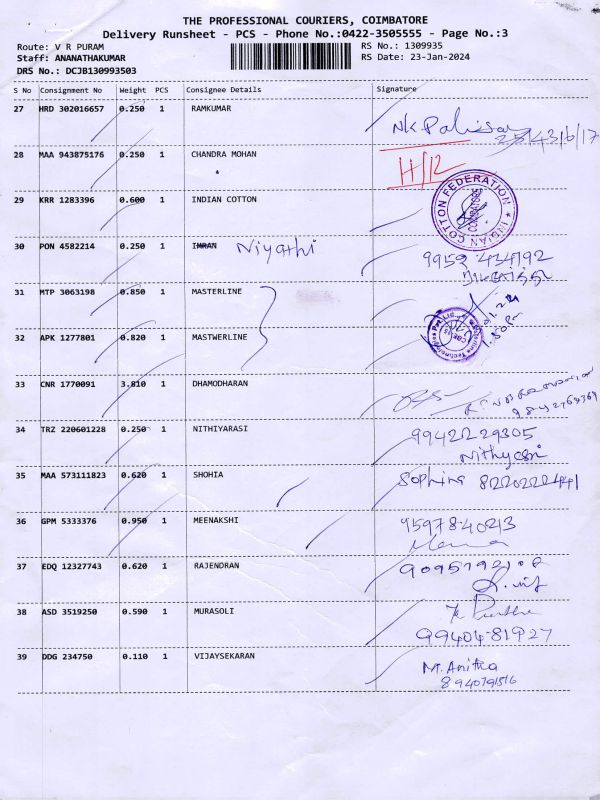 THE PROFESSIONAL COURIERS, COIMBATORE
Delivery Runsheet - PCS - Phone No.:0422-3505555 - Page No.:3
Route: V R PURAM
RS No.: 1309935
Staff: ANANATHAKUMAR
RS Date: 23-Jan-2024
DRS No.: DCJB130993503
S No Consignment No Weight PCS Consignee Details Signature
27 HRD 302016657 0.250 1 RAMKUMAR
28 MAA 943875176 0.250 1 CHANDRA MOHAN
H/12
29 KRR 1283396 0.600 1 INDIAN COTTON
INDIAN COTTON FEDERATION
COIMBATORE
30 PON 4582214 0.250 1 IMRAN Niyathi
31 MTP 3063198 0.850 1 MASTERLINE
32 APK 1277801 0.820 1 MASTWERLINE
33 CNR 1770091 3.810 1 DHAMODHARAN
34 TRZ 220601228 0.250 1 NITHIYARASI 99422 29305
35 MAA 573111823 0.620 1 SHOHIA Sophina 8220222441
36 GPM 5333376 0.950 1 MEENAKSHI
37 EDQ 12327743 0.620 1 RAJENDRAN
38 ASD 3519250 0.590 1 MURASOLI
99404-81927
39 DDG 234750 0.110 1 VIJAYSEKARAN M. Anitha